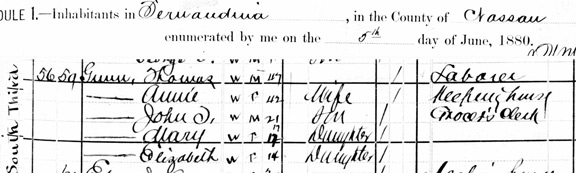 DULE 1.—Inhabitants in Fernandina, in the County of Nassau
enumerated by me on the 5th day of June, 1880.
George W M Son
56 59 Gunn, Thomas W M 47 / Laborer
— Annie W F 42 Wife / Keeping house
— John W M 21 Son / Grocer's Clerk
— Mary W F 17 Daughter /
— Elizabeth W F 14 Daughter /
South Third